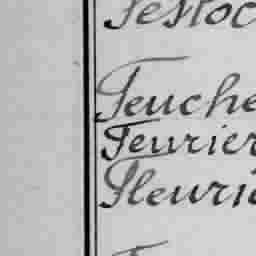 Festoc
Feuche
Feurier
Fleuri